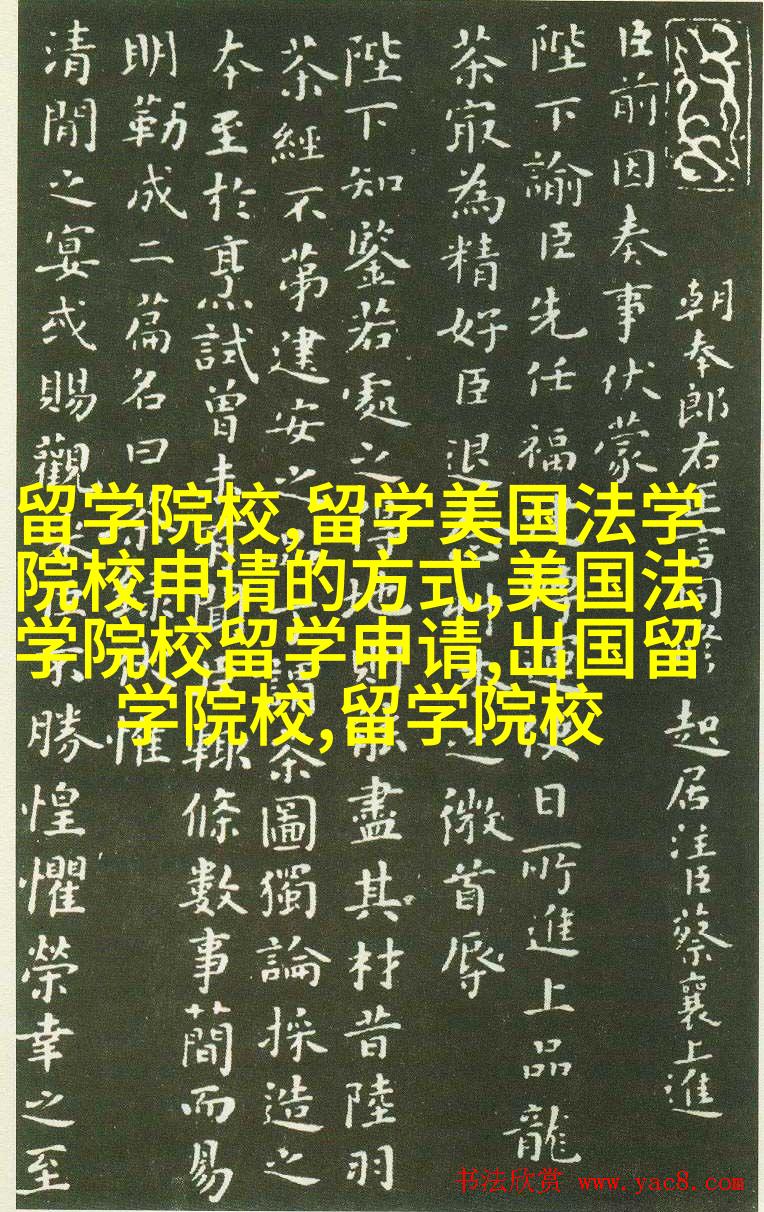 朝奉郎右正言同修起居注臣蔡襄上進
臣前因奏事伏蒙
陛下諭臣先任福運使日所進上品龍
茶㝡為精好臣退之微首辱
陛下知鑒若處之得地則盡其材昔陸羽
茶經不第建安之謂茶圖獨論採造之
本至於烹試曾未有聞輒條數事簡而易
明勒成二篇名曰惟
清閒之宴或賜觀采不勝惶懼榮幸之至
留学院校,留学美国法学
院校申请的方式,美国法
学院校留学申请,出国留
学院校,留学院校
书法欣赏 www.yac8.com